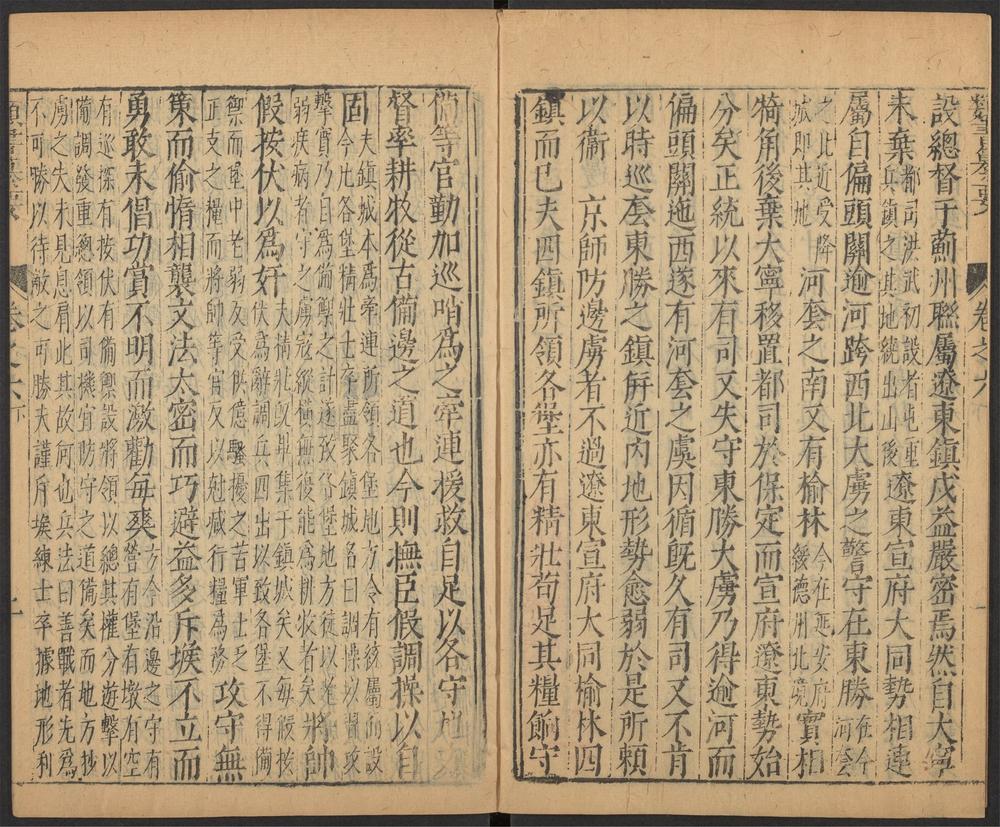 設總督于薊州聯屬遼東鎮戍益嚴密焉然自大寧
未棄都司洪武初設者屯重兵鎮之其地繞出山後遼東宣府大同勢相連
屬自偏頭關逾河跨西北大虜之警守在東勝在今河套
之北近受降城即其地河套之南又有榆林今在延安府綏德州北境實相
犄角後棄大寧移置都司於保定而宣府遼東勢始
分矣正統以來有司又失守東勝大虜乃得逾河而
偏頭關迤西遂有河套之虞因循既久有司又不肯
以時巡套東勝之鎮屏近內地形勢愈弱於是所賴
以衞 京師防邊虜者不過遼東宣府大同榆林四
鎮而已夫四鎮所領各堡亦有精壯苟足其糧餉守
備等官勤加巡哨爲之牽連援救自足以各守地
督率耕牧從古備邊之道也今則撫臣假調操以自
固夫鎮城本爲牽連所領各堡地方令有統屬而設今乃各堡精壯士卒盡聚鎮城名曰調操以習攻
擊實乃自爲備禦之計遂致各堡地方徒以老弱疾病者守之虜寇縱橫無復能爲耕牧者矣將帥
假按伏以爲奸夫精壯既畢集于鎮城矣又每假按伏爲辭調兵四出以致各堡不得備
禦而堡中老弱反受供億騷擾之苦軍士乏正支之糧而將帥等官反以尅減行糧爲務攻守無
策而偷惰相襲文法太密而巧避益多斥堠不立而
勇敢末倡功賞不明而激勸每爽方今沿邊之守有營有堡有墩有空
有巡探有按伏有備禦設將領以總其權分遊擊以備調發重總領以司機宜防守之道備矣而地方抄
虜之失未見息肩此其故何也兵法曰善戰者先爲不可勝以待敵之可勝夫謹斥堠練士卒據地形利
卷之六